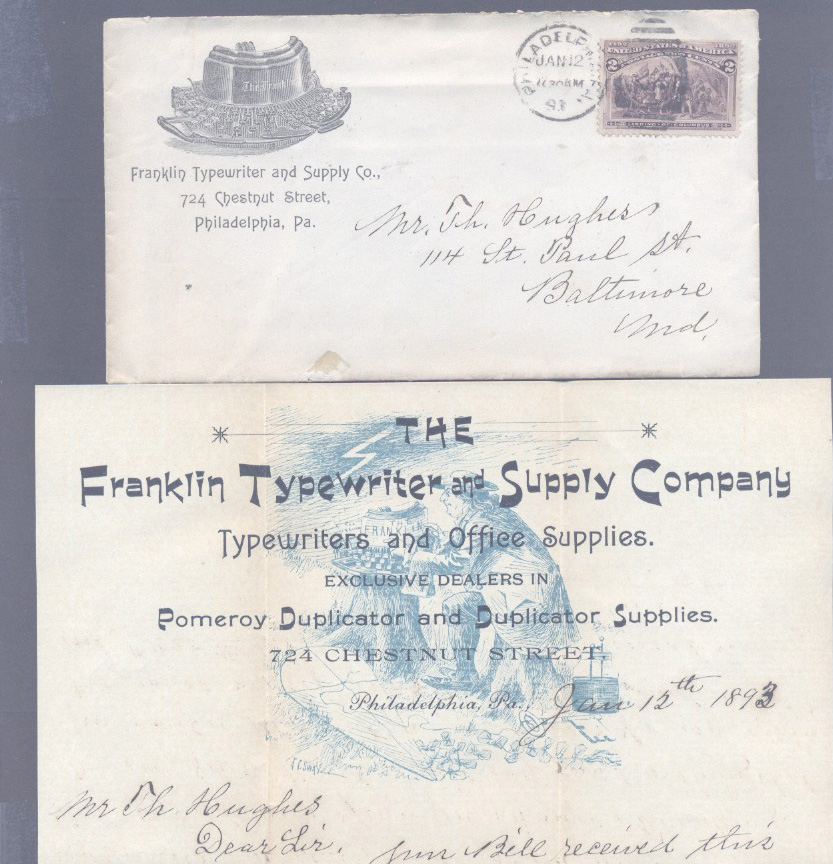 Franklin Typewriter and Supply Co.,
724 Chestnut Street,
Philadelphia, Pa.
PHILADELPHIA, PA.
JAN 12
11 30 AM
93
1492 1892
UNITED STATES OF AMERICA
2 2
LANDING OF COLUMBUS
Mr. Th. Hughes
114 St. Paul St.
Baltimore
Md.
THE
Franklin Typewriter and Supply Company
FRANKLIN
Typewriters and Office Supplies.
EXCLUSIVE DEALERS IN
Pomeroy Duplicator and Duplicator Supplies.
724 CHESTNUT STREET.
Philadelphia, Pa., Jan 12th 1893
Mr Th. Hughes
Dear Sir. Your Bill received this